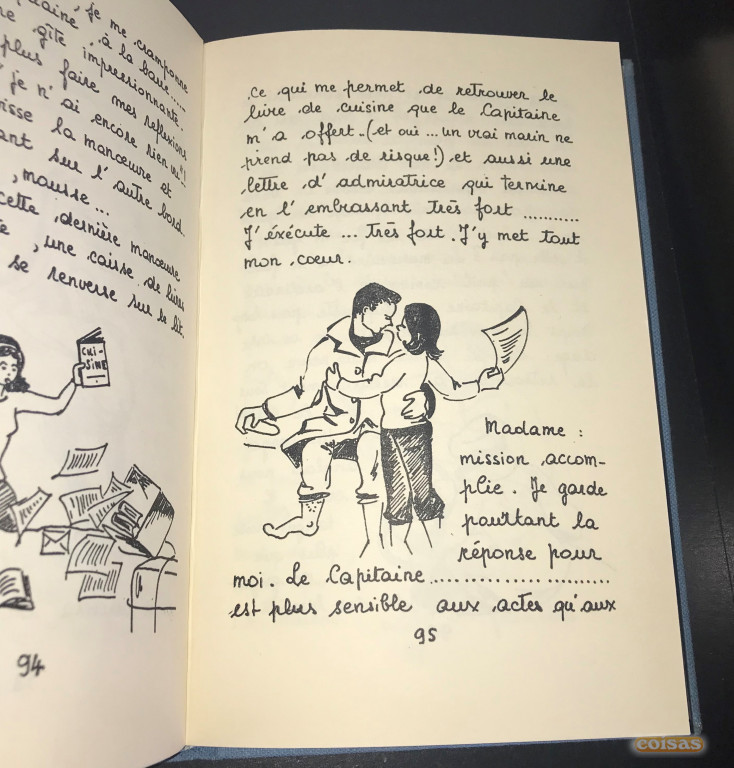 , je me cramponne
, à la baue.....
gîte impressionnante.
plus faire mes reflexions
je n'ai encore rien vu"!
la manœuvre et
sur l'autre bord.
, mousse ...
cette dernière manœuvre
, une caisse de livres
se renverse sur le lit.
CUI-
SINE
94
ce qui me permet de retrouver le
livre de cuisine que le Capitaine
m'a offert.(et oui ... un vrai marin ne
prend pas de risque!) et aussi une
lettre d'admiratrice qui termine
en l'embrassant très fort ...........
J'éxécute ... très fort. J'y met tout
mon coeur.
Madame :
mission accom-
plie. Je garde
pourtant la
réponse pour
moi. Le Capitaine .......................
est plus sensible aux actes qu'aux
95
coisas